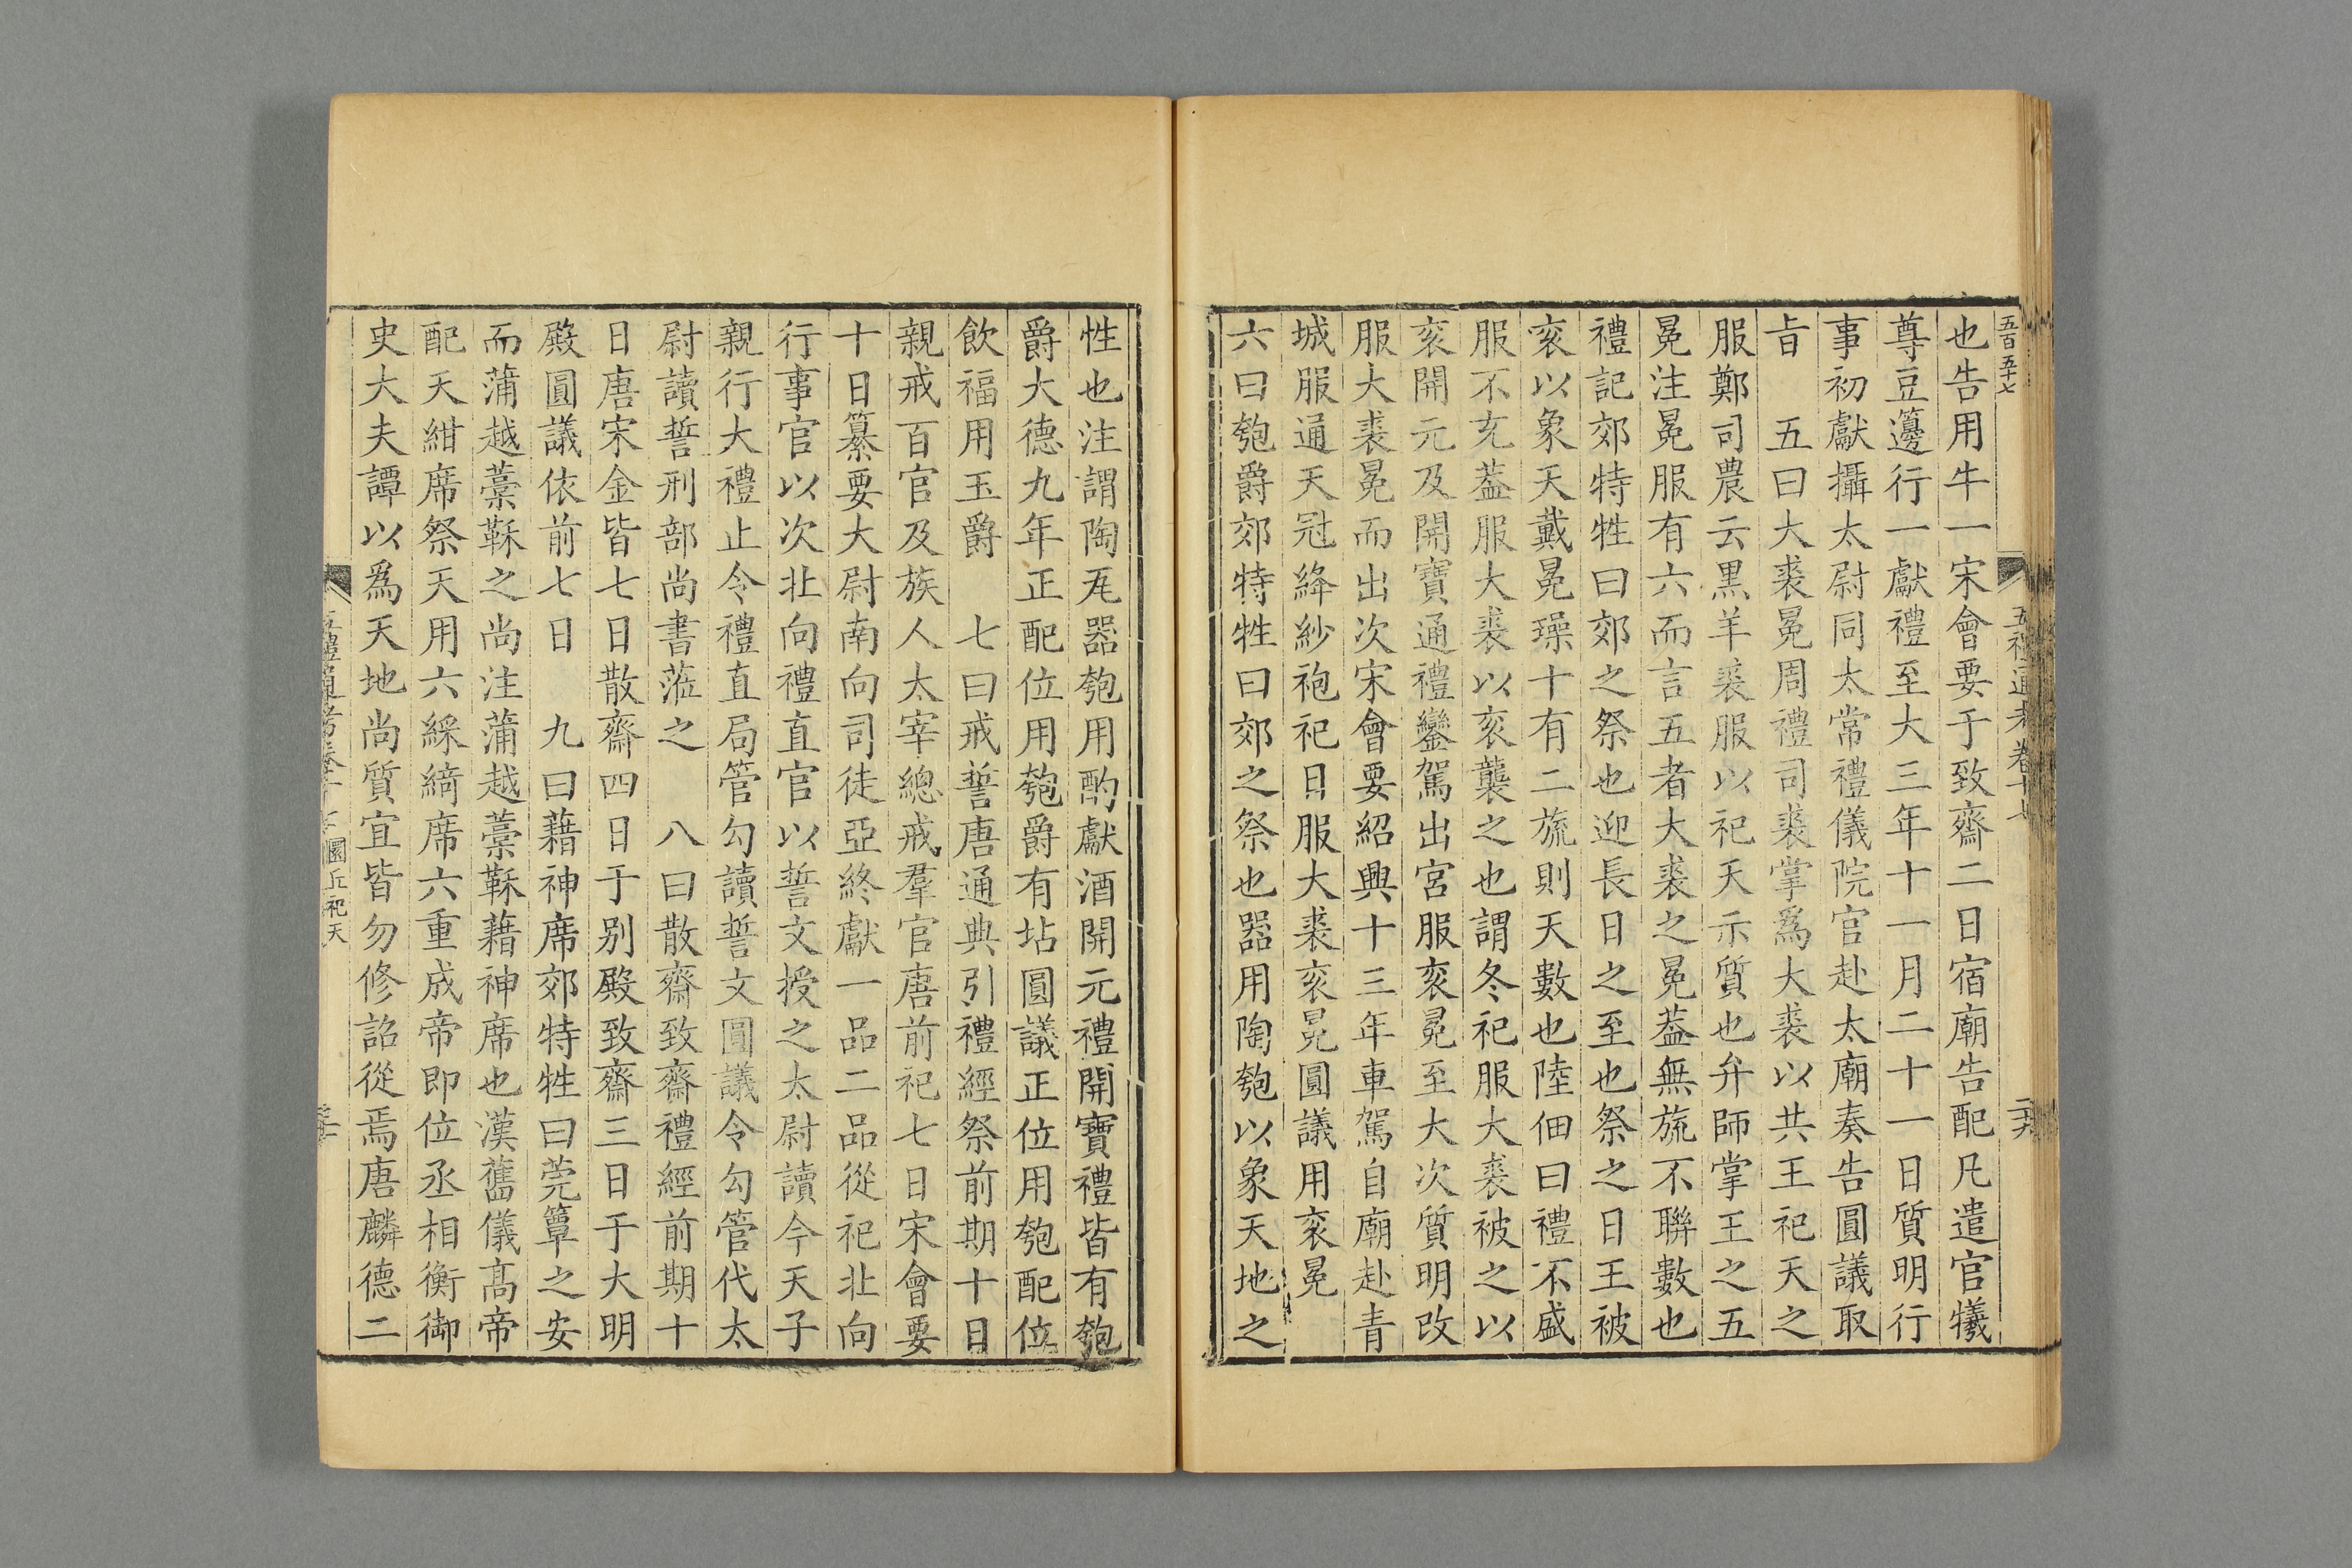 五百五十七
五禮通考卷十七
二十六
也告用牛一宋會要于致齋二日宿廟告配凡遣官犧
尊豆籩行一獻禮至大三年十一月二十一日質明行
事初獻攝太尉同太常禮儀院官赴太廟奏告圓議取
㫖　五曰大裘冕周禮司裘掌爲大裘以共王祀天之
服鄭司農云黑羊裘服以祀天示質也弁師掌王之五
冕注冕服有六而言五者大裘之冕葢無旒不聯數也
禮記郊特牲曰郊之祭也迎長日之至也祭之日王被
衮以象天戴冕璪十有二旒則天數也陸佃曰禮不盛
服不充葢服大裘以衮襲之也謂冬祀服大裘被之以
衮開元及開寶通禮鑾駕出宮服衮冕至大次質明改
服大裘冕而出次宋會要紹興十三年車駕自廟赴青
城服通天冠絳紗袍祀日服大裘衮冕圓議用衮冕
六曰匏爵郊特牲曰郊之祭也器用陶匏以象天地之
性也注謂陶瓦器匏用酌獻酒開元禮開寶禮皆有匏
爵大德九年正配位用匏爵有坫圓議正位用匏配位
飲福用玉爵　七曰戒誓唐通典引禮經祭前期十日
親戒百官及族人太宰總戒羣官唐前祀七日宋會要
十日纂要大尉南向司徒亞終獻一品二品從祀北向
行事官以次北向禮直官以誓文授之太尉讀今天子
親行大禮止令禮直局管勾讀誓文圓議令勾管代太
尉讀誓刑部尚書蒞之　八曰散齋致齋禮經前期十
日唐宋金皆七日散齋四日于别殿致齋三日于大明
殿圓議依前七日　九曰藉神席郊特牲曰莞簟之安
而蒲越藁鞂之尚注蒲越藁鞂藉神席也漢舊儀髙帝
配天紺席祭天用六綵綺席六重成帝即位丞相衡御
史大夫譚以爲天地尚質宜皆勿修詔從焉唐麟德二
五禮通考卷十七
圜丘祀天